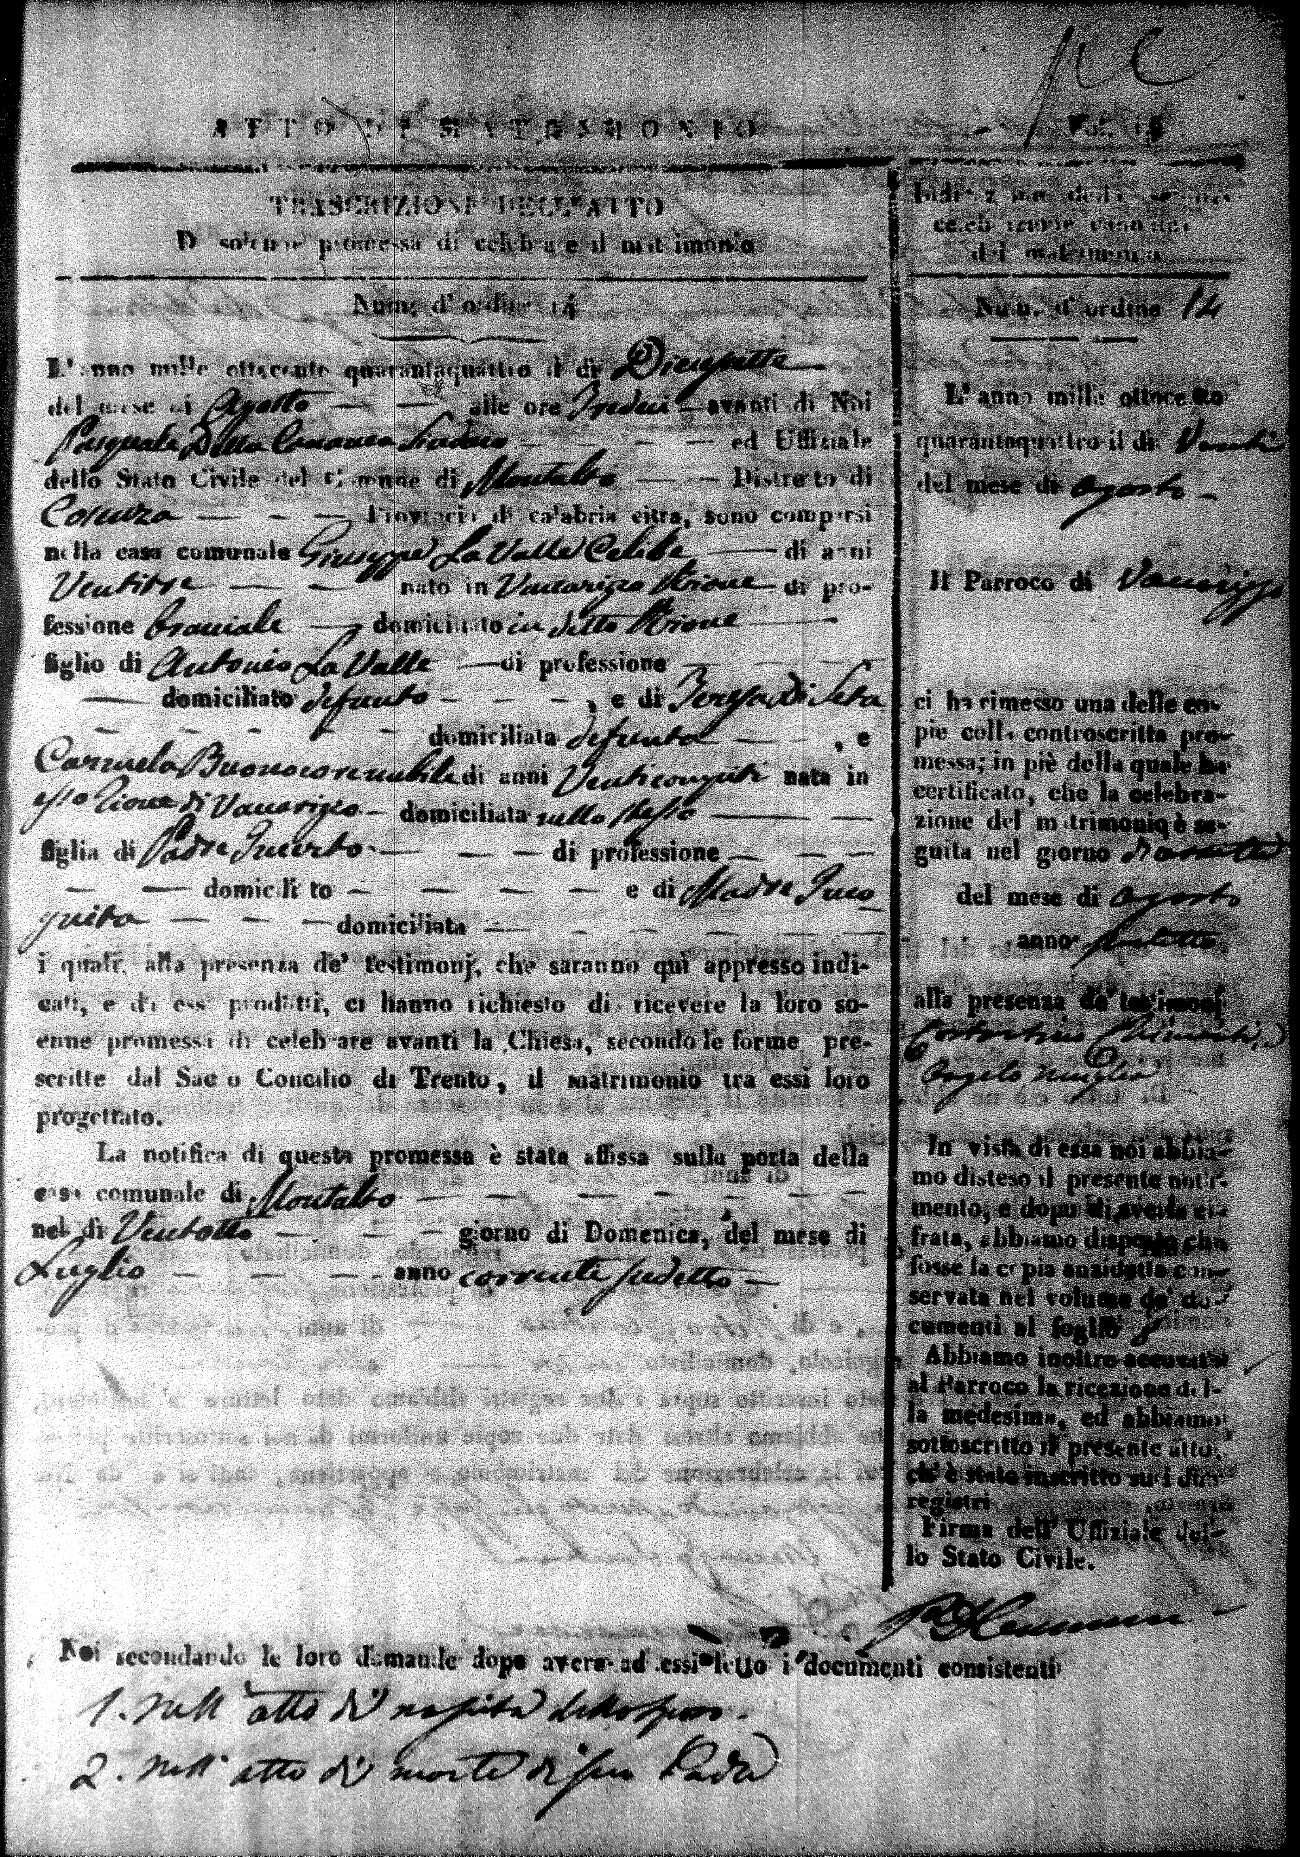 ATTO DI MATRIMONIO
TRASCRIZIONE DELL'ATTO
Di solenne promessa di celebrare il matrimonio
Num. d'ordine 14
L'anno mille ottocento quarantaquattro il dì Diciasette
del mese di Agosto alle ore Tredici avanti di Noi
Pasquale Della ed Uffiziale
dello Stato Civile del Comune di Montalto Distretto di
Cosenza Provincia di calabria citra, sono comparsi
nella casa comunale Giuseppe La Valle Celibe di anni
Ventitre nato in Vaccarizzo Rione di pro-
fessione Bracciale domiciliato in detto Rione
figlio di Antonio La Valle di professione
domiciliato defunto , e di Teresa di Seta
domiciliata defunta , e
Carmela Buonocore nubile di anni Venticinque nata in
esso Rione di Vaccarizzo domiciliata nello stesso
figlia di Padre Incerto di professione
domiciliato e di Madre Inco
gnita domiciliata
i quali, alla presenza de' testimonj, che saranno quì appresso indi-
cati, e da essi prodotti, ci hanno richiesto di ricevere la loro so-
enne promessa di celebrare avanti la Chiesa, secondo le forme pre-
scritte dal Sacro Concilio di Trento, il matrimonio tra essi loro
progettato.
La notifica di questa promessa è stata affissa sulla porta della
casa comunale di Montalto
nel dì Ventotto giorno di Domenica, del mese di
Luglio anno corrente sudetto
Noi secondando le loro domande dopo avere ad essi letto i documenti consistenti
1. Nell' atto di nascita dello sposo.
2. Nell' atto di morte di suo Padre
Indicazione della seguita
celebrazione canonica
del matrimonio
Num. d'ordine 14
L'anno mille ottocento
quarantaquattro il dì Venti
del mese di Agosto
Il Parroco di Vaccarizzo
ci ha rimesso una delle co-
pie colla controscritta pro-
messa; in piè della quale ha
certificato, che la celebra-
zione del matrimonio è se-
guita nel giorno diciasette
del mese di Agosto
anno sudetto
alla presenza de' testimonj
Angelo
In vista di essa noi abbia-
mo disteso il presente notir-
mento, e dopo di averla ci-
frata, abbiamo disposto che
fosse la copia anzidetta con-
servata nel volume de' do-
cumenti al foglio 8
Abbiamo inoltre accusata
al Parroco la ricezione del-
la medesima, ed abbiamo
sottoscritto il presente atto,
ch' è stato inscritto su i due
registri
Firma dell' Uffiziale del-
lo Stato Civile.